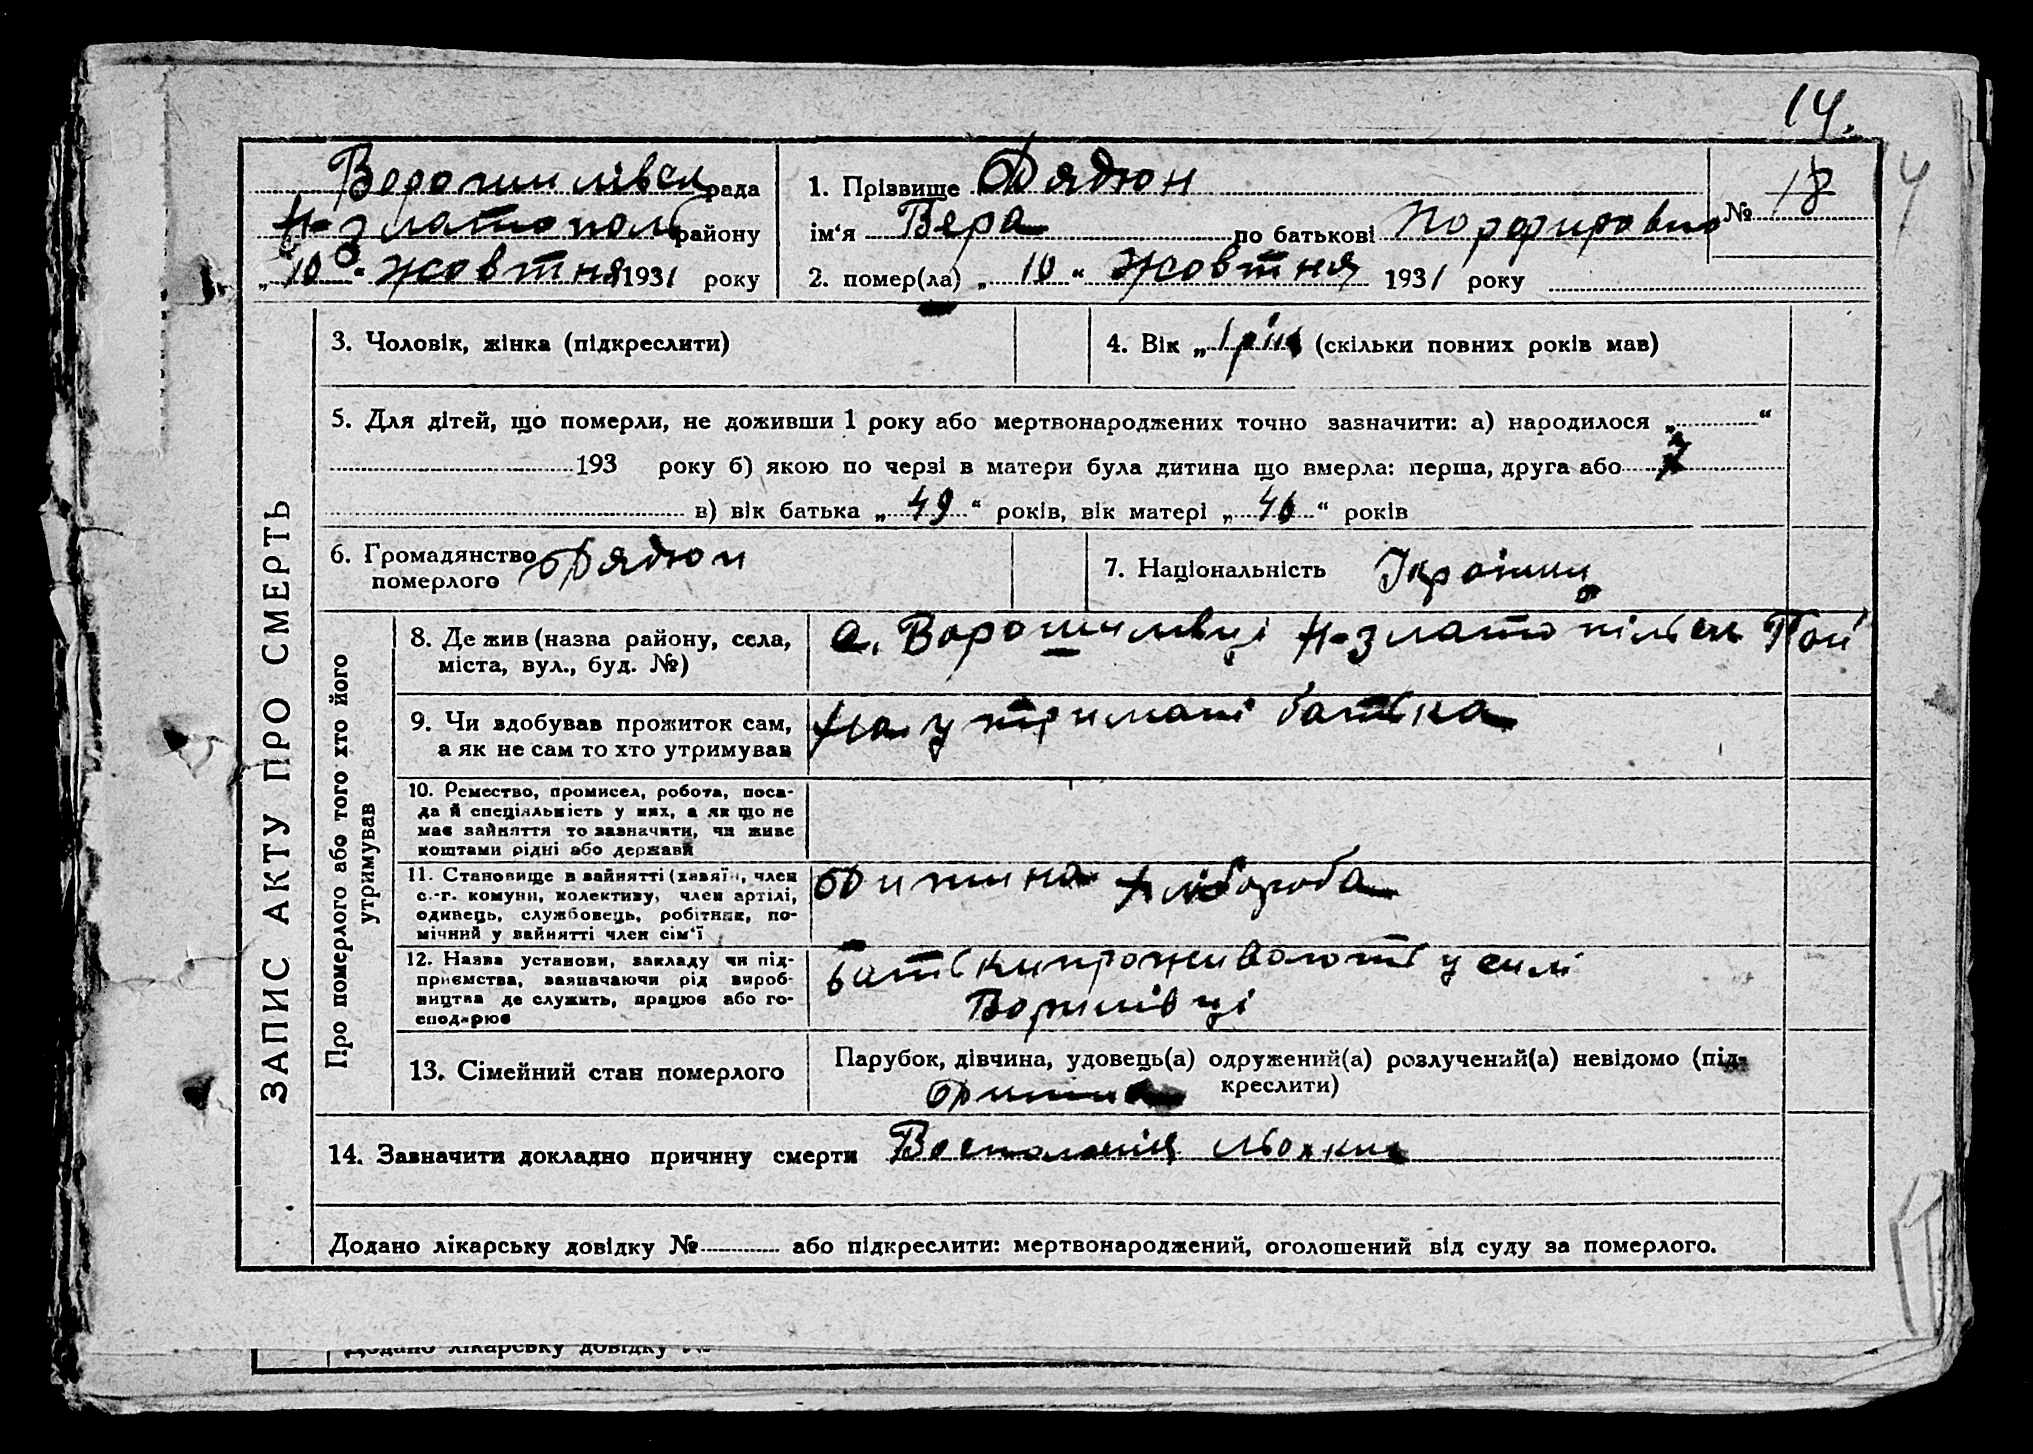 14.
Ворошилівськ рада
Н-Златополь району
„10“ жовтня 1931 року
1. Прізвище Дядюн
ім‘я Вера по батькові Порфировно
№ 18
4
2. помер(ла) „10“ жовтня 1931 року
ЗАПИС АКТУ ПРО СМЕРТЬ
3. Чоловік, жінка (підкреслити)
4. Вік „1 рік (скільки повних років мав)
5. Для дітей, що померли, не доживши 1 року або мертвонароджених точно зазначити: а) народилося „ “
193 року б) якою по черзі в матери була дитина що вмерла: перша, друга або 7
в) вік батька „49“ років, вік матері „46“ років
6. Громадянство
померлого Дядюн
7. Національність Україниц
Про померлого або того хто його
утримував
8. Де жив (назва району, села,
міста, вул., буд. №)
с. Ворошилівці Н-златопільськ
9. Чи здобував прожиток сам,
а як не сам то хто утримував
На утримані батька
10. Ремество, промисел, робота, поса-
да й спеціяльність у них, а як що не
має зайняття то зазначити, чи живе
коштами рідні або держави
11. Становище в зайнятті (хазяїн, член
с.-г. комуни, колективу, член артілі,
одинець, службовець, робітник, по-
мічний у зайнятті член сім‘ї
Дитина хлібороба
12. Назва установи, закладу чи під-
приємства, зазначаючи рід вироб-
ництва де служить, працює або го-
сподарює
батьки проживають у силі
13. Сімейний стан померлого
Парубок, дівчина, удовець(а) одружений(а) розлучений(а) невідомо (під-
креслити)
Дитина
14. Зазначити докладно причину смерти Воспаленія льохких
Додано лікарську довідку № або підкреслити: мертвонароджений, оголошений від суду за померлого.
Додано лікарську довідку №